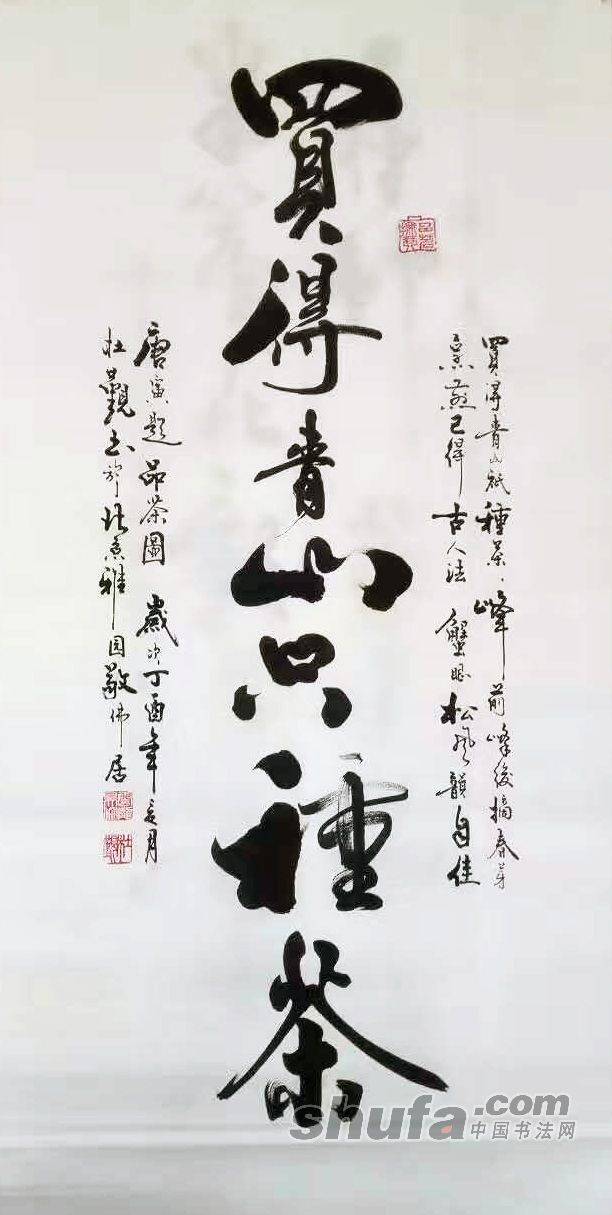 買得青山祇種茶、峰前峰後摘春芽
烹煎已得古人法 蟹眼松風韻自佳
買得青山只種茶
唐寅題品茶圖 歲次丁酉年月
杜觀书於北京雅园敬佛居
shufa.com
中国书法网